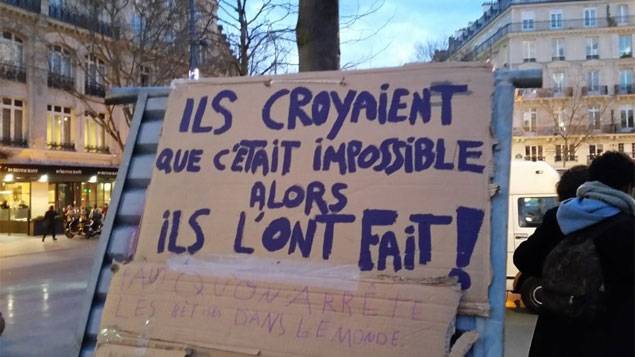 ILS CROYAIENT
QUE C'ÉTAIT IMPOSSIBLE
ALORS
ILS L'ONT FAIT!
QU'ON ARRÊTE
LES BÊTISES DANS LE MONDE.